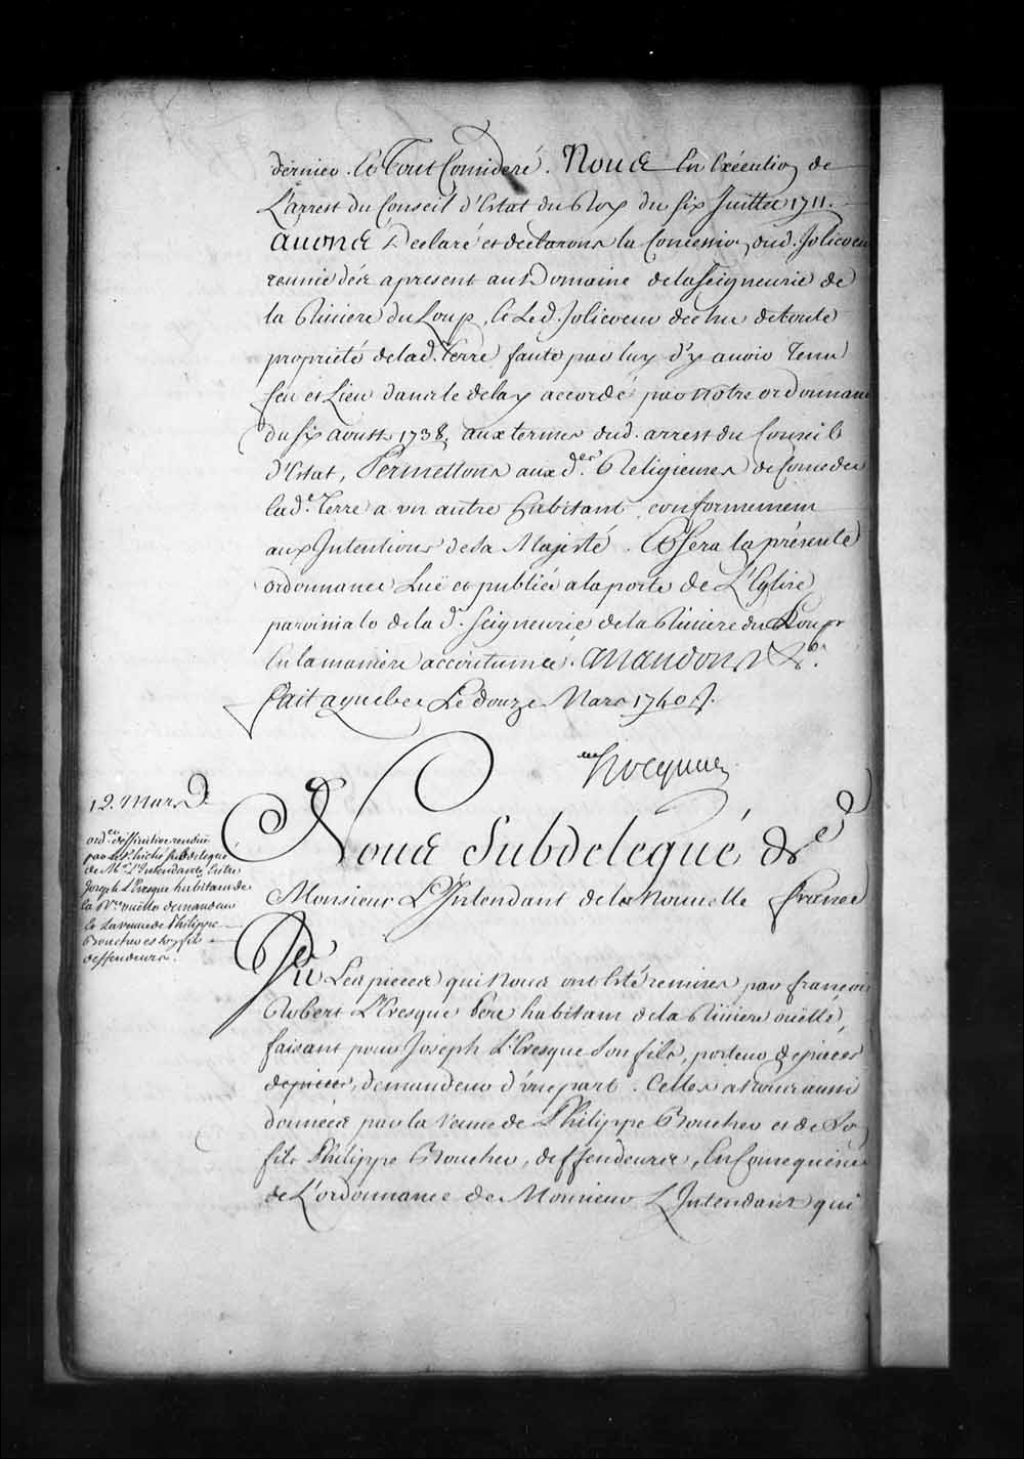 dernier. Le Tout Consideré. Nous En Exécution de
L'arrest du Conseil d'Estat du Roy du six Juillet 1711.
avons Declaré et declarons la Concession dud. Jolicoeur
reunie dés apresent au Domaine de la Seigneurie de
la Riviere du Loup, Et Led. Jolicoeur dechu de toute
proprieté de lad. Terre faute par luy d'y avoir Tenu
feu et Lieu dans le delay accordé par Notre ordonnance
du six aoust 1738, aux termes dud. arrest du Conseil
d'Estat, Permettons aux d.es Religieuses de Conceder
lad.e Terre a un autre habitant conformement
aux Intentions de Sa Majesté. Et Sera la présente
ordonnance Luë et publiée a la porte de L'Eglise
paroissiale de la d. Seigneurie de la Riviere du Loup
En la maniere accoutumée. Mandons &.
Fait a quebec Le douze Mars 1740 /.
Hocquart
12. Mars D.
ord.ce deffinitive renduë
par Le S. hiché subdelegué
de M. L'Intendant, Entre
Joseph L'Evesque habitant de
la R.re ouëlle demandeur
Et La veuve de Philippe
Boucher et son fils
deffendeurs.
Nous Subdelegué de
Monsieur L'Intendant de la Nouvelle france
Vu Les pieces qui Nous ont Eté remises par francois
Robert L'Evesque Pere habitant de la Riviere ouëlle,
faisant pour Joseph L'Evesque Son fils, porteur de pieces
de pieces, demandeur d'une part. Celles a Nous aussi
données par la Veuve de Philippe Boucher et de So
fils Philippe Boucher, deffendeurs, En Consequence
de L'ordonnance de Monsieur L'Intendant qui